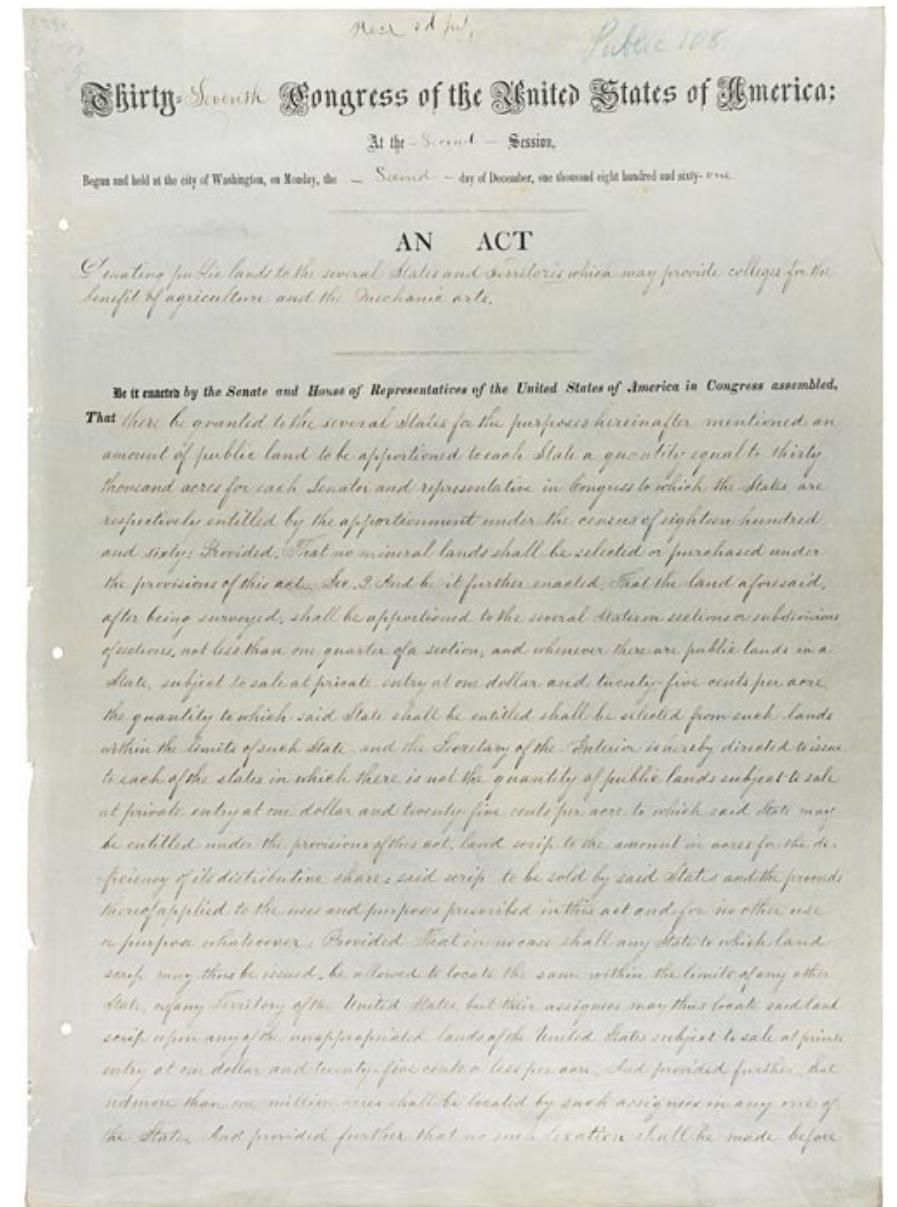 Public 108.
Thirty-Seventh Congress of the United States of America;
At the - Second - Session,
Begun and held at the city of Washington, on Monday, the - Second - day of December, one thousand eight hundred and sixty-one
AN ACT
Donating public lands to the several States and Territories which may provide colleges for the
benefit of agriculture and the Mechanic arts.
Be it enacted by the Senate and House of Representatives of the United States of America in Congress assembled,
That there be granted to the several States for the purposes hereinafter mentioned an
amount of public land to be apportioned to each State a quantity equal to thirty
thousand acres for each Senator and representative in Congress to which the States are
respectively entitled by the apportionment under the census of eighteen hundred
and sixty: Provided, That no mineral lands shall be selected or purchased under
the provisions of this act. Sec. 2. And be it further enacted, That the land aforesaid,
after being surveyed, shall be apportioned to the several States in sections or subdivisions
of sections, not less than one quarter of a section, and whenever there are public lands in a
State, subject to sale at private entry at one dollar and twenty-five cents per acre,
the quantity to which said State shall be entitled shall be selected from such lands
within the limits of such State, and the Secretary of the Interior is hereby directed to issue
to each of the states in which there is not the quantity of public lands subject to sale
at private entry at one dollar and twenty five cents per acre to which said State may
be entitled under the provisions of this act, land scrip to the amount in acres for the de-
ficiency of its distributive share: said scrip to be sold by said States and the proceeds
thereof applied to the uses and purposes prescribed in this act and for no other use
or purpose whatsoever: Provided That in no case shall any State to which land
scrip may thus be issued, be allowed to locate the same within the limits of any other
State, or of any Territory of the United States, but their assignees may thus locate said land
scrip upon any of the unappropriated lands of the United States subject to sale at private
entry at one dollar and twenty-five cents or less per acre. And provided further, that
not more than one million acres shall be located by such assignees in any one of
the States. And provided further that no such location shall be made before